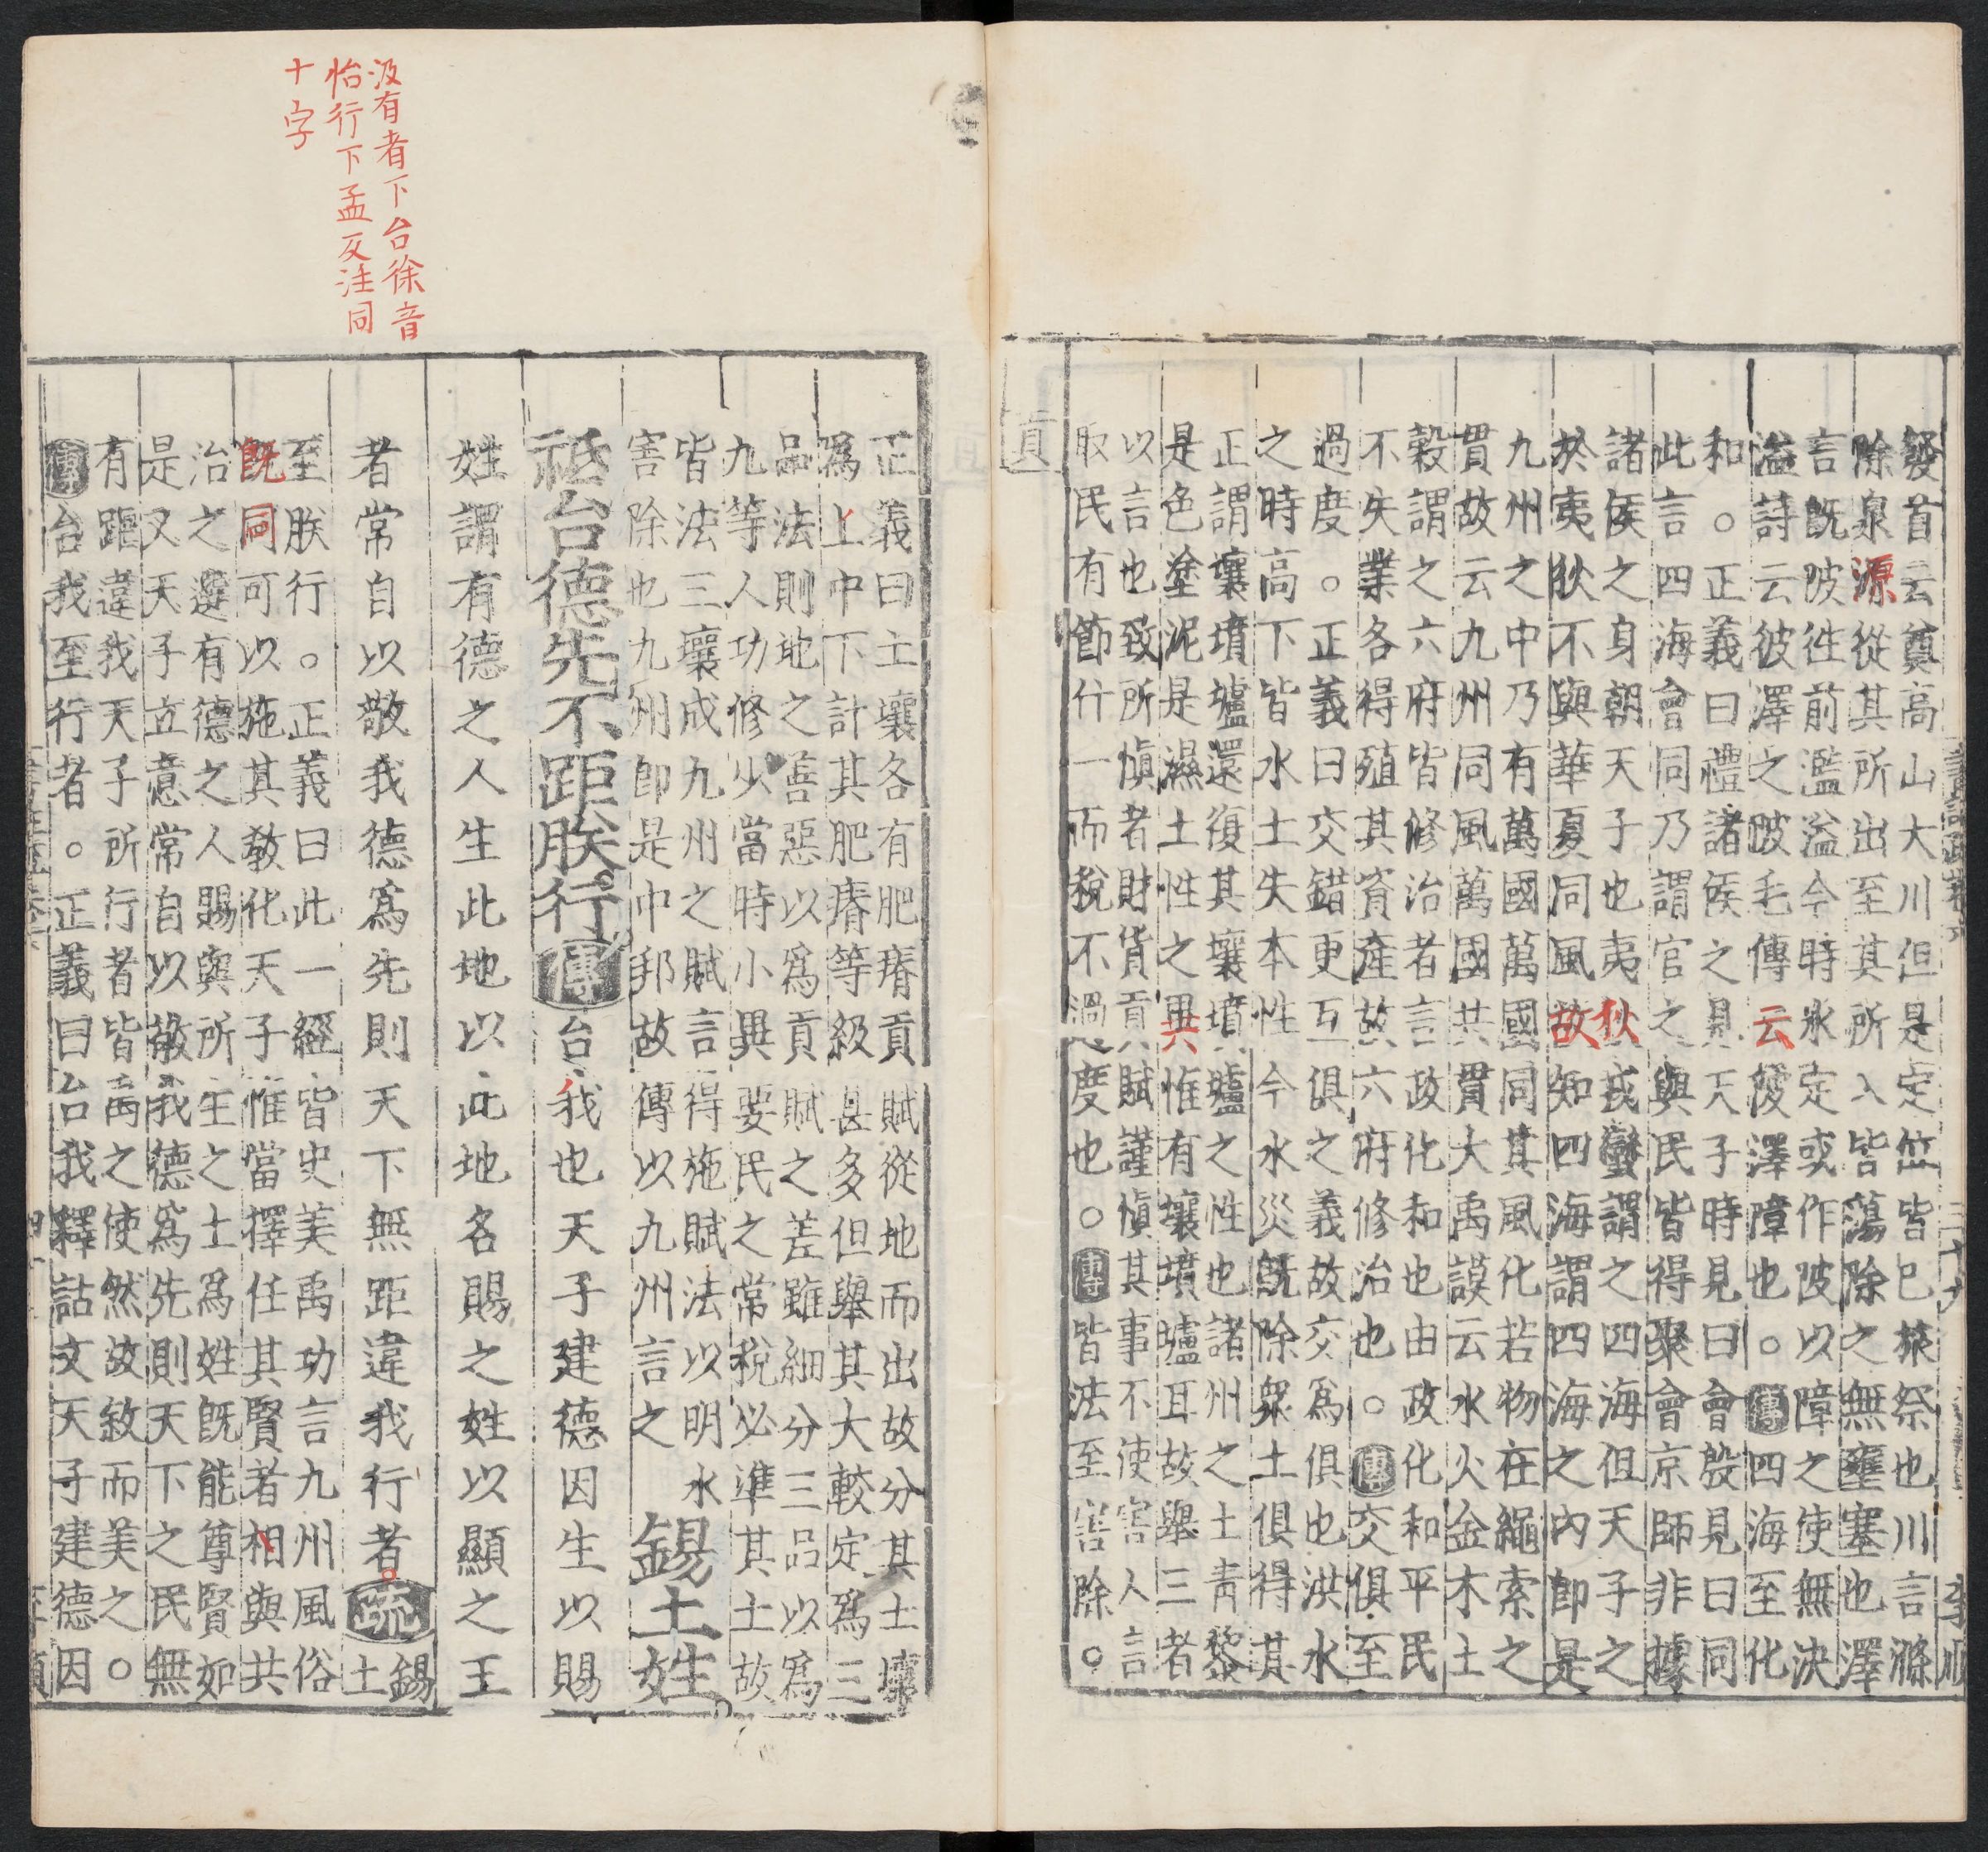 發首云奠高山大川但是定位皆已旅祭也川言滌
除泉源從其所出至其所入皆蕩除之無壅塞也澤
言既陂徃前濫溢今時水定或作陂以障之使無決
溢詩云彼澤之陂毛傳云陂澤障也。傳四海至化
和。正義曰禮諸侯之見天子時見曰會殷見曰同
此言四海會同乃謂官之與民皆得聚會京師非據
諸侯之身朝天子也夷狄戎蠻謂之四海但天子之
於夷狄不與華夏同風故知四海謂四海之內即是
九州之中乃有萬國萬國同其風化若物在繩索之
貫故云九州同風萬國共貫大禹謨云水火金木土
穀謂之六府皆修治者言政化和也由政化和平民
不失業各得殖其資產故六府修治也。傳交俱至
過度。正義曰交錯更互俱之義故交爲俱也洪水
之時高下皆水土失本性今水災既除眾土俱得其
正謂壤墳壚還復其壤墳壚之性也諸州之土青黎
是色塗泥是濕土性之異惟有壤墳壚耳故舉三者
以言也致所慎者財貨貢賦謹慎其事不使害人言
取民有節什一而稅不過度也。傳皆法至害除。
貢
正義曰土壤各有肥瘠貢賦從地而出故分其土壤
爲上中下計其肥瘠等級甚多但舉其大較定爲三
品法則地之善惡以爲貢賦之差雖細分三品以爲
九等人功修少當時小異要民之常稅必準其土故
皆法三壤成九州之賦言得施賦法以明水
害除也九州即是中邦故傳以九州言之
錫土姓
祗台德先不距朕行傳台我也天子建德因生以賜
姓謂有德之人生此地以此地名賜之姓以顯之王
者常自以敬我德爲先則天下無距違我行者。疏錫
土
至朕行。正義曰此一經皆史美禹功言九州風俗
既同可以施其教化天子惟當擇任其賢者相與共
治之選有德之人賜與所生之土爲姓既能尊賢如
是又天子立意常自以敬我德爲先則天下之民無
有距違我天子所行者皆禹之使然故敘而美之。
傳台我至行者。正義曰台我釋詁文天子建德因
汲有者下台徐音
怡行下孟反注同
十字